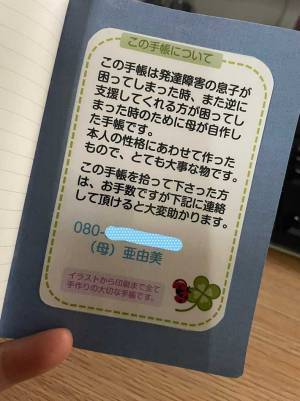 この手帳について
この手帳は発達障害の息子が
困ってしまった時、また逆に
支援してくれる方が困ってし
まった時のために母が自作し
た手帳です。
本人の性格にあわせて作った
もので、とても大事な物です。
この手帳を拾って下さった方
は、お手数ですが下記に連絡
して頂けると大変助かります。
080-
(母)亜由美
イラストから印刷まで全て
手作りの大切な手帳です。